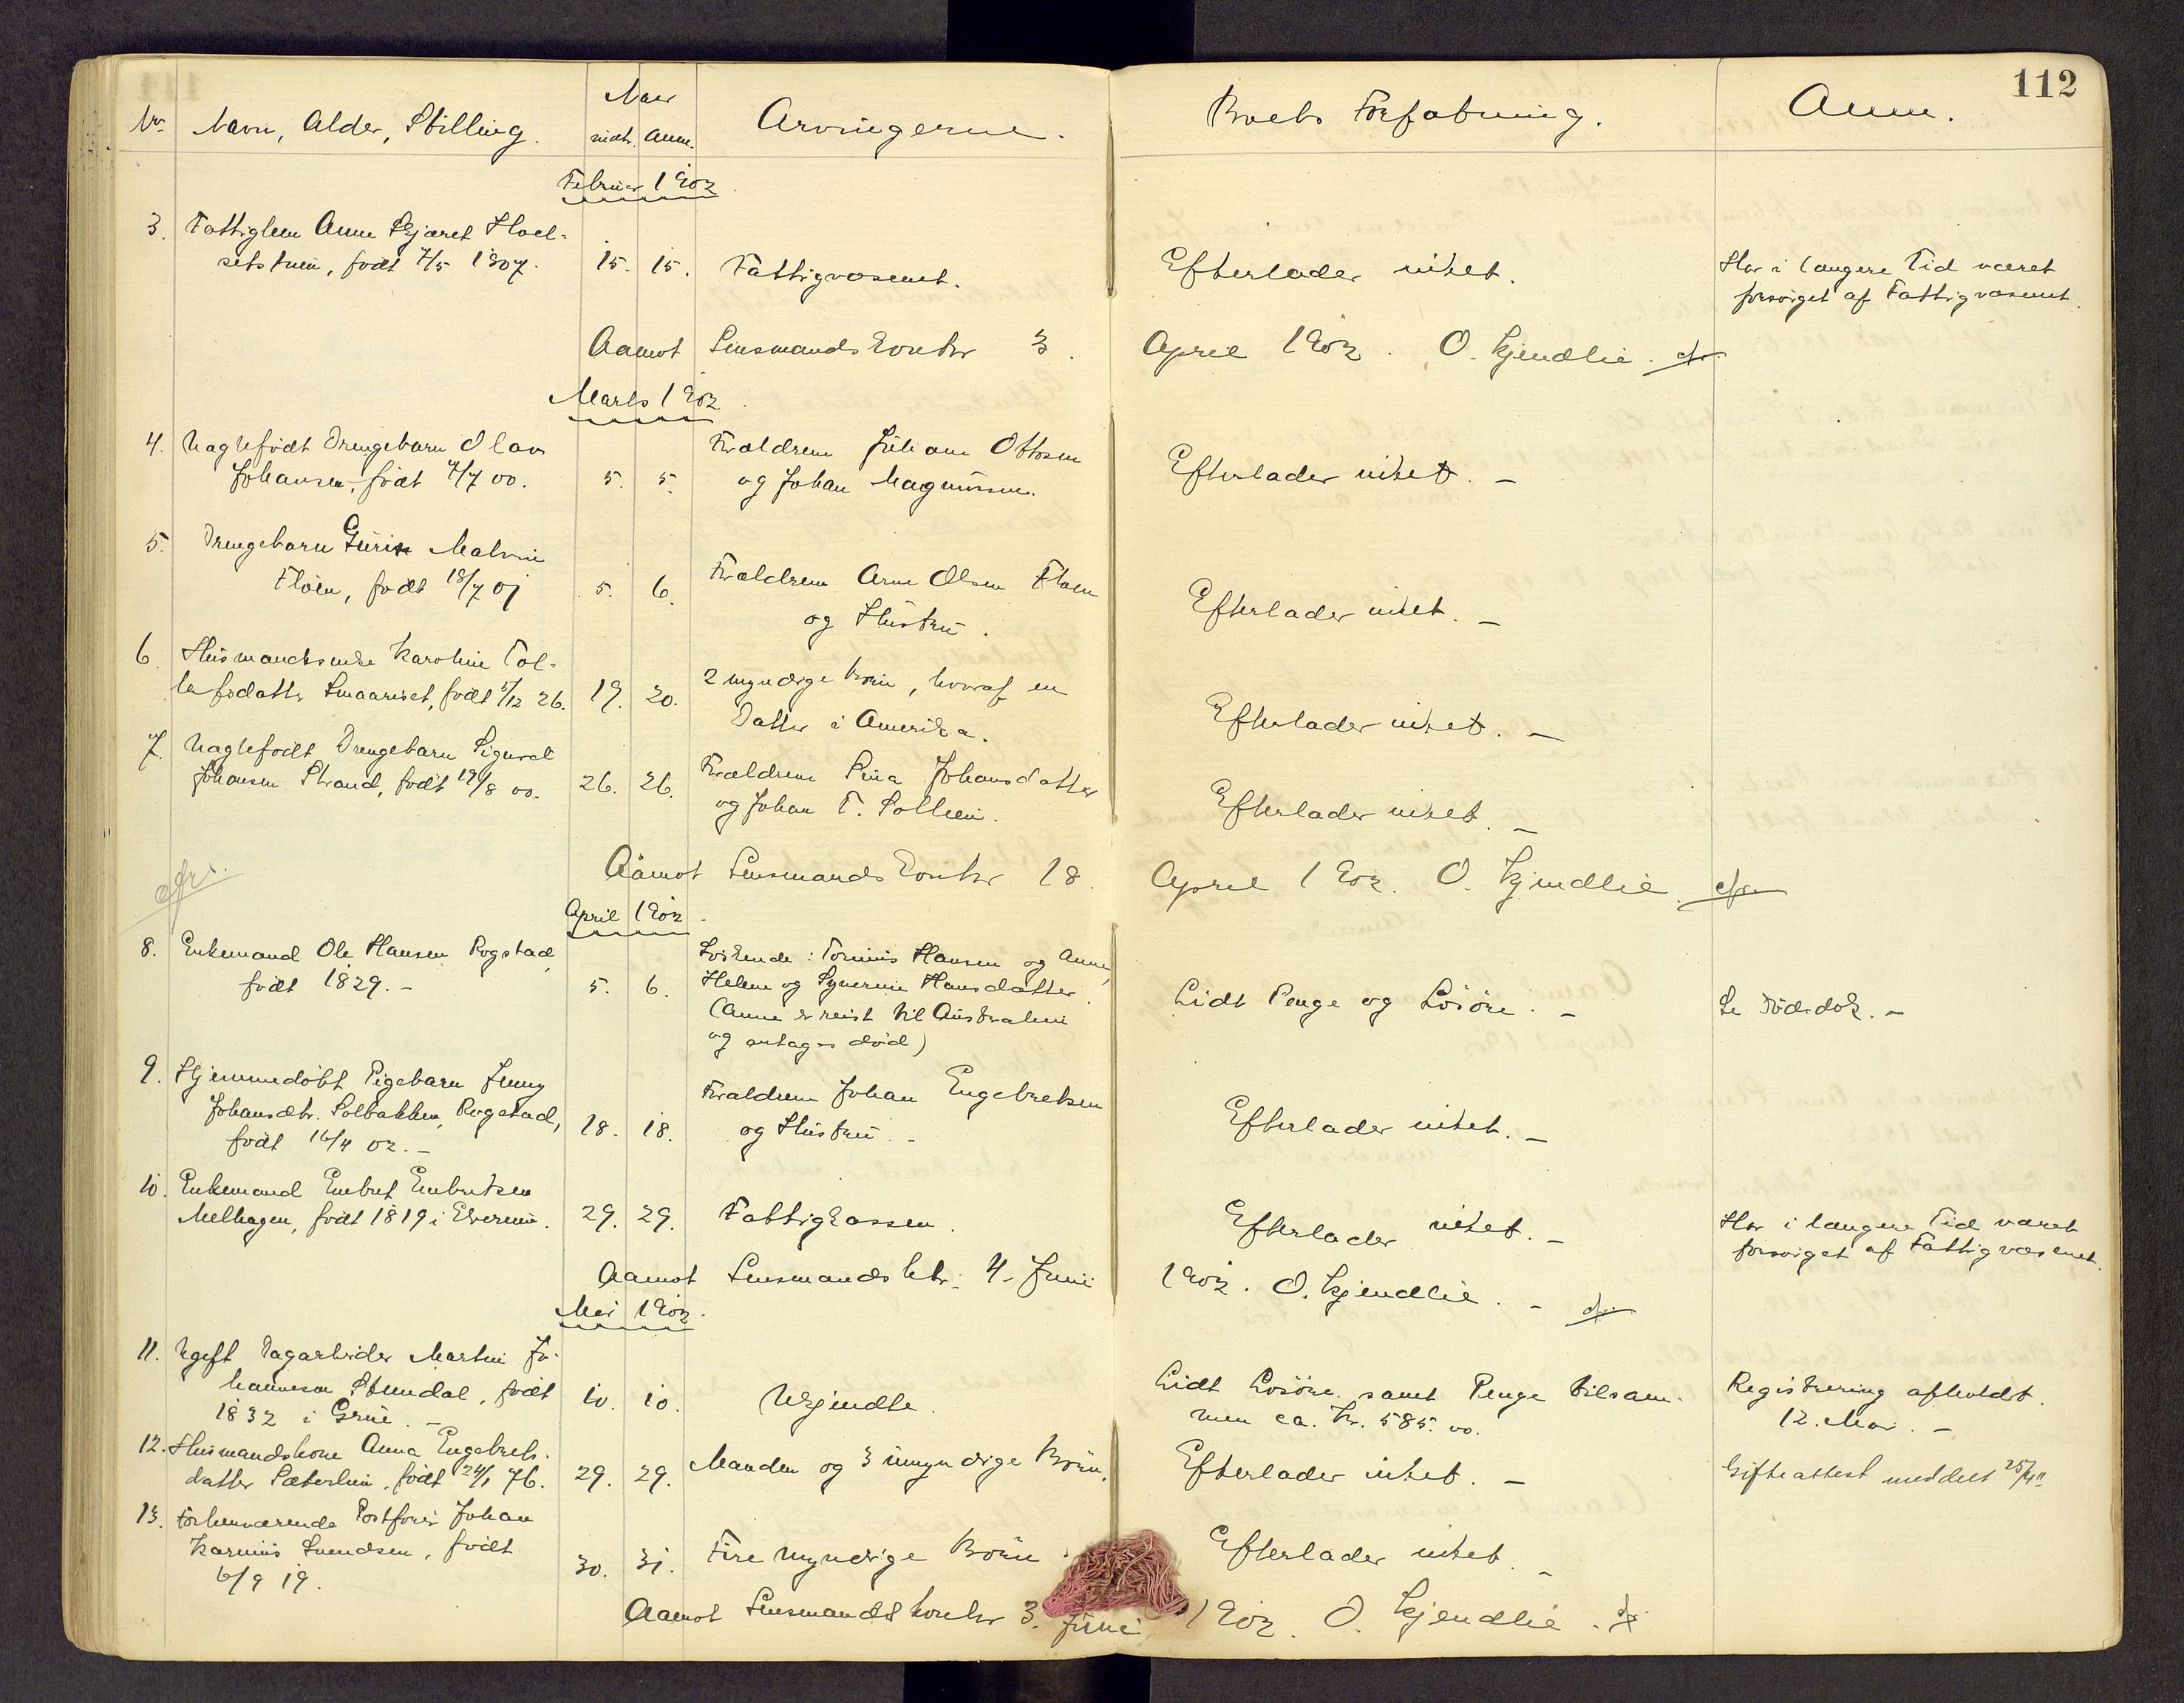 112
Naar
No. Navn, Alder, Stilling. indtr. anm. Arvingerne. Boets Forfatning. Anm.
Februar 1902
3. Fattiglem Anne Skjæret Hoel-
setstuen, født 7/5 1807. 15. 15. Fattigvæsenet. Efterlader intet. Har i længere Tid været
forsørget af Fattigvæsenet.
Aamot Lensmandskontor 3. April 1902. O. Kjendlie.
Marts 1902
4. Uægtefødt Drengebarn Olav Forældrene Juliane Ottosen
Johansen, født 4/7 00. 5. 5. og Johan Magnussen. Efterlader intet. -
5. Drengebarn Malvin Forældrene Arne Olsen Floen
Fløen, født 18/7 01 5. 6. og Hustru. Efterlader intet. -
6. Husmandsenke Karoline Tol- 2 myndige Børn, hvoraf en
lefsdatter Smaariset, født 5/12 26. 19. 20. Datter i Amerika. Efterlader intet. -
7. Uægtefødt Drengebarn Sigurd Forældrene Lina Johansdatter
Johansen Strand, født 19/8 00. 26. 26. og Johan T. Sollien. Efterlader intet. -
Aamot Lensmandskontor 18. April 1902. O. Kjendlie.
April 1902.
8. Enkemand Ole Hansen Rogstad, Søskende: Tønnes Hansen og Anne,
født 1829. - 5. 6. Helene og Syverine Hansdatter. Lidt Penge og Løsøre. - Se Dødsdok. -
(Anne er reist til Australien
og antages død)
9. Hjemmedøbt Pigebarn Jenny Forældrene Johan Engebretsen
Johansdtr. Solbakken, Rogstad, 18. 18. og Hustru. - Efterlader intet. -
født 16/4 02. -
10. Enkemand Embret Embretsen
Melhagen, født 1819 i Elverum. 29. 29. Fattigkassen. Efterlader intet. - Har i længere Tid været
forsørget af Fattigvæsenet.
Aamot Lensmandsktr. 4. Juni 1902. O. Kjendlie. -
Mai 1902.
11. Ugift Dagarbeider Martin Jo-
hannesen Stendal, født 10. 10. Ukjendte. Lidt Løsøre samt Penge tilsam- Registrering afholdt
1832 i Grue. - men ca. Kr. 585.00. 12. Mai. -
12. Husmandskone Anna Engebrets-
datter Sæterlien, født 24/1 76. 29. 29. Manden og 3 umyndige Børn. Efterlader intet. - Gifteattest meddelt 25/4
13. Forhenværende Postfører Johan
Karinius Svendsen, født 30. 31. Fire myndige Børn. Efterlader intet. -
6/9 19.
Aamot Lensmandskontor 3. Juni 1902. O. Kjendlie.